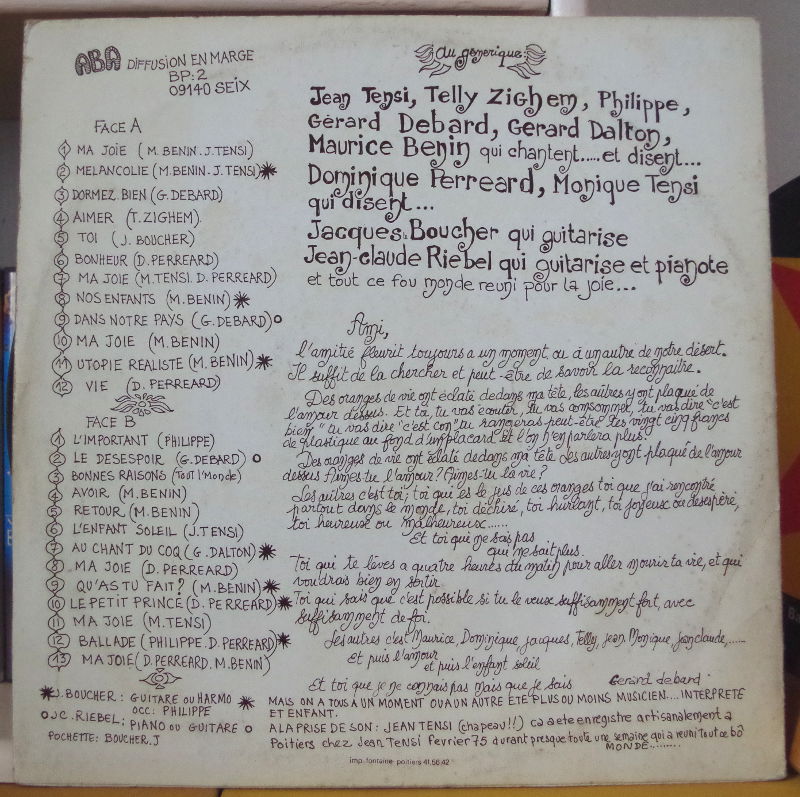 ABA DIFFUSION EN MARGE
BP: 2
09140 SEIX
FACE A
1 MA JOIE (M. BENIN. J. TENSI)
2 MELANCOLIE (M. BENIN. J. TENSI)
3 DORMEZ BIEN (G. DEBARD)
4 AIMER (T. ZIGHEM)
5 TOI (J. BOUCHER)
6 BONHEUR (D. PERREARD)
7 MA JOIE (M. TENSI. D. PERREARD)
8 NOS ENFANTS (M. BENIN)
9 DANS NOTRE PAYS (G. DEBARD)
10 MA JOIE (M. BENIN)
11 UTOPIE REALISTE (M. BENIN)
12 VIE (D. PERREARD)
FACE B
1 L'IMPORTANT (PHILIPPE)
2 LE DESESPOIR (G. DEBARD)
3 BONNES RAISONS (Tout l'Monde)
4 AVOIR (M. BENIN)
5 RETOUR (M. BENIN)
6 L'ENFANT SOLEIL (J. TENSI)
7 AU CHANT DU COQ (G. DALTON)
8 MA JOIE (D. PERREARD)
9 QU'AS TU FAIT? (M. BENIN)
10 LE PETIT PRINCE (D. PERREARD)
11 MA JOIE (M. TENSI)
12 BALLADE (PHILIPPE. D. PERREARD)
13 MA JOIE (D. PERREARD. M. BENIN)
J. BOUCHER: GUITARE OU HARMO
OCC: PHILIPPE
J.C. RIEBEL: PIANO OU GUITARE
POCHETTE: BOUCHER. J
au generique:
Jean Tensi, Telly Zighem, Philippe,
Gérard Debard, Gerard Dalton,
Maurice Benin qui chantent..... et disent...
Dominique Perreard, Monique Tensi
qui disent...
Jacques Boucher qui guitarise
Jean-claude Riebel qui guitarise et pianote
et tout ce fou monde reuni pour la joie...
Ami,
l'amitié fleurit toujours a un moment, ou à un autre de notre désert.
Il suffit de la chercher et peut-être de savoir la reconnaitre.
Des oranges de vie ont éclaté dedans ma tête, les autres y ont plaqué de
l'amour dessus. Et toi, tu vas écouter, tu vas consommer, tu vas dire "c'est
bien" tu vas dire "c'est con", tu rangeras peut-être tes vingt cinq francs
de plastique au fond d'un placard et l'on n'en parlera plus.
Des oranges de vie ont éclaté dedans ma tête. Les autres y ont plaqué de l'amour
dessus. Aimes-tu l'amour? Aimes-tu la vie?
Les autres c'est toi; toi qui es le jus de ces oranges toi que j'ai rencontré
partout dans le monde, toi déchiré, toi hurlant, toi joyeux ou desespéré,
toi heureux ou malheureux......
Et toi qui ne sais pas
qui ne sait plus.
Toi qui te lèves a quatre heures du matin pour aller mourir ta vie, et qui
voudrais bien en sortir.
Toi qui sais que c'est possible si tu le veux suffisamment fort, avec
suffisamment de foi.
Les autres c'est Maurice, Dominique, jacques, Telly, jean, Monique, jean claude,......
Et puis l'amour
et puis l'enfant soleil
Et toi que je ne connais pas mais que je sais
Gerard debard.
MAIS ON A TOUS À UN MOMENT OU A UN AUTRE ETE PLUS OU MOINS MUSICIEN.... INTERPRETE
ET ENFANT.
A LA PRISE DE SON: JEAN TENSI (chapeau!!) ca a ete enregistre artisanalement a
Poitiers chez Jean Tensi fevrier 75 durant presque toute une semaine qui a reuni tout ce bô
MONDE.........
imp. fontaine poitiers 41.56.42